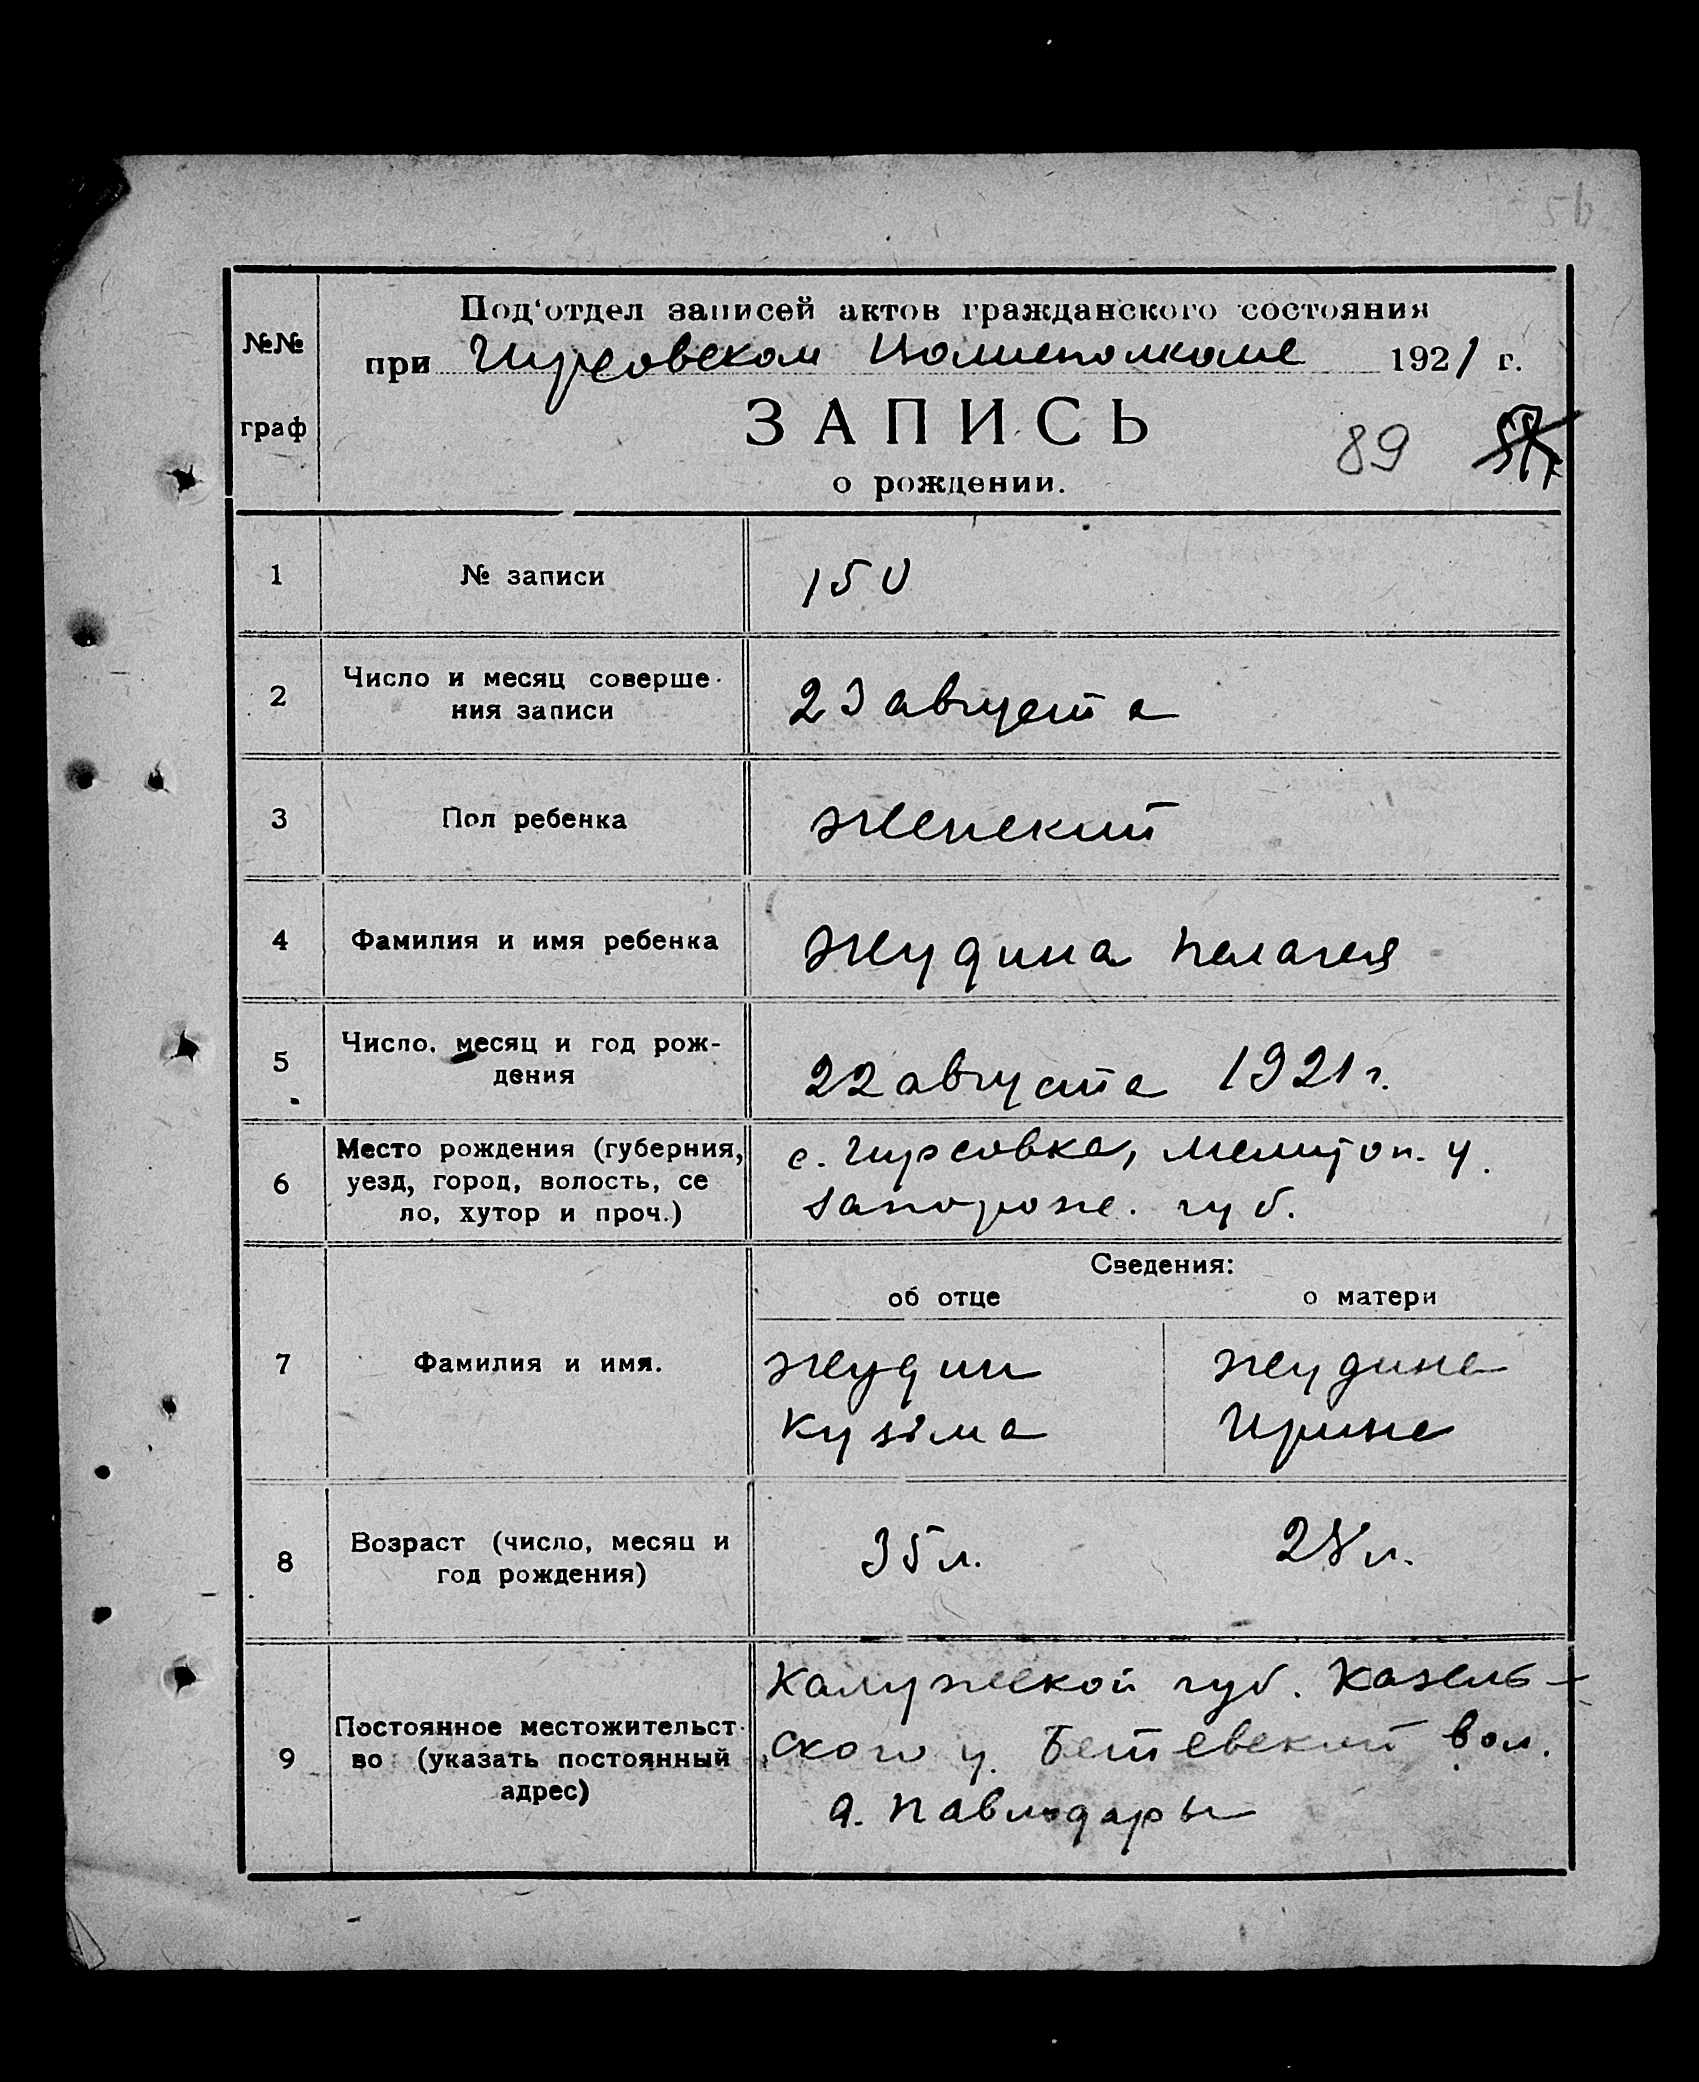 56
Под‘отдел записей актов гражданского состояния
№№
при Гирсовском Волисполкоме 1921 г.
граф
ЗАПИСЬ
89
о рождении.
1 № записи 150
2 Число и месяц соверше-
ния записи
23 августа
3 Пол ребенка женский
4 Фамилия и имя ребенка Жудина Пелагея
5 Число, месяц и год рож-
дения
22 августа 1921 г.
6 Место рождения (губерния,
уезд, город, волость, се
ло, хутор и проч.)
с. Гирсовка, Мелитоп. у.
Запорож. губ.
Сведения:
об отце о матери
7 Фамилия и имя.
Жудин Жудина
Кузьма Ирина
8 Возраст (число, месяц и
год рождения)
35 л. 28 л.
9 Постоянное местожительст-
во (указать постоянный
адрес)
Калужской губ. Козель-
ского у. вол.
д.